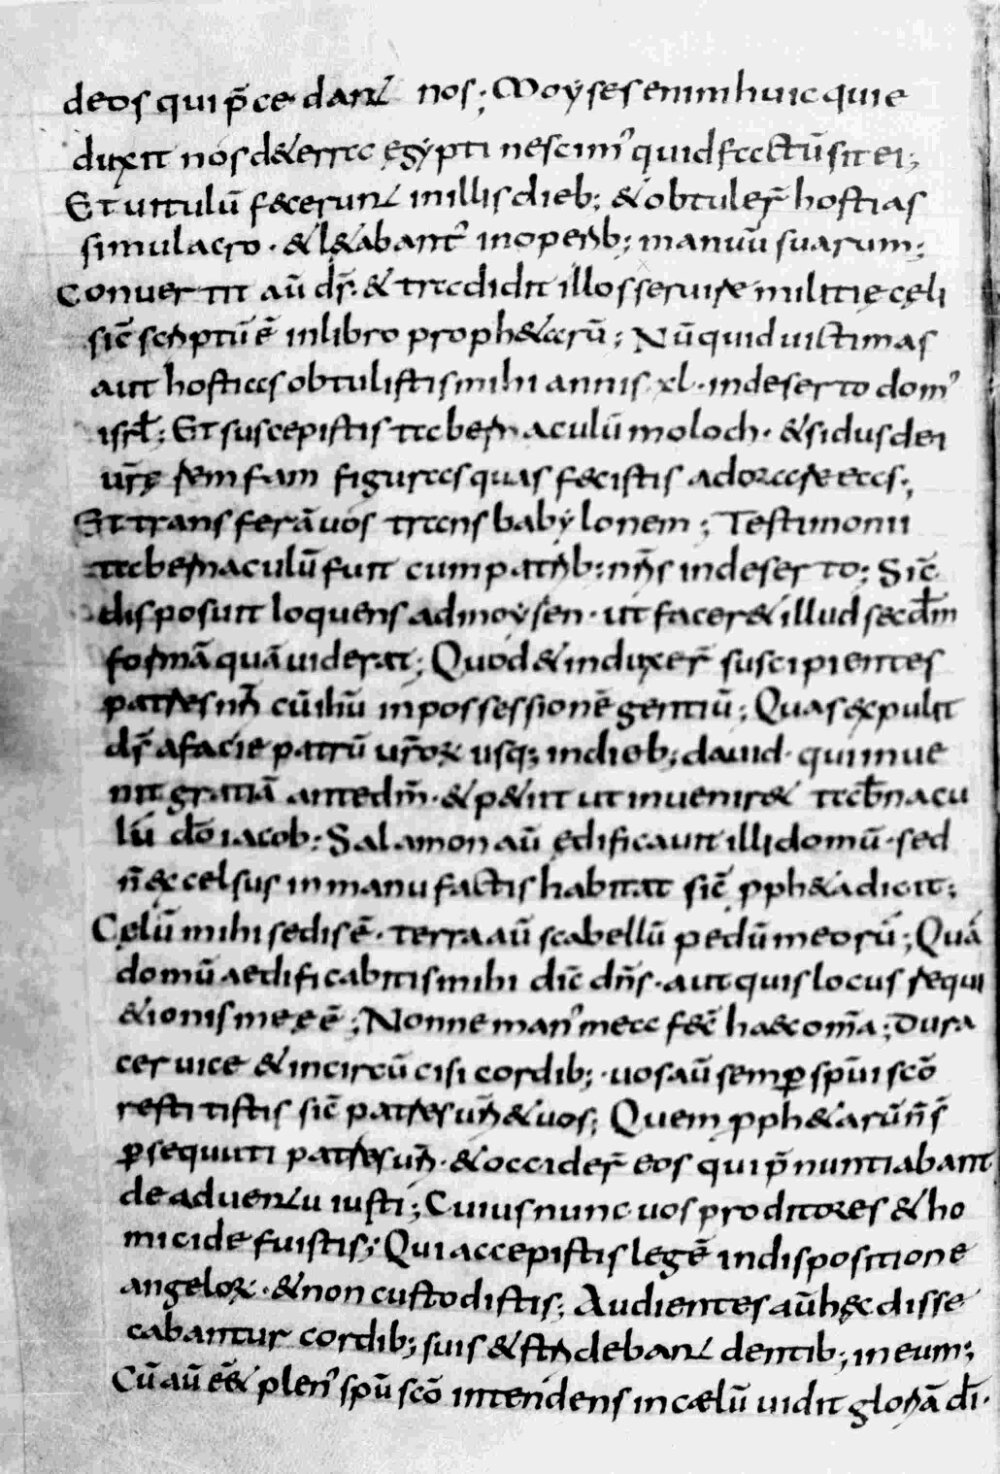 deos qui p̄cedant nos; Moyses enim hic qui e
duxit nos de terra ęgypti nescim' quid factū sit ei;
Et uitulū fecerunt in illis dieb; & obtuler̄ hostias
simulacro · & l&abant' in operib; manuū suarum;
Conuertit aū d̄s · & tradidit illos seruire militię cęli
sic̄ scriptū ē in libro proph&arū; Nūquid uictimas
aut hostias obtulistis mihi annis xl · in deserto dom'
isrł; Et suscepistis tabernaculū moloch · & sidus dei
ur̄ę remfam figuras quas fecistis adorare eas;
Et transferā uos trans babylonem; Testimonii
tabernaculū fuit cum patrib; nr̄is in deserto; Sic̄
disposuit loquens ad moysen · ut facer& illud secdm̄
formā quā uiderat; Quod & induxer̄ suscipientes
patres nr̄i cū ihū in possessionē gentiū; Quas expulit
d̄s a facie patrū ur̄oꝝ usq; in dieb; dauid · qui inue
nit gratiā ante dm̄ · & p&iit ut inuenir& tab̄nacu
lū dō iacob; Salamon aū ędificauit illi domū · sed
n̄ excelsus in manufactis habitat sic̄ pph&a dicit;
Cęlū mihi sedis ē · terra aū scabellū pedū meorū; Quā
domū aedificabitis mihi dic̄ dn̄s · aut quis locus requi
&ionis meę ē; Nonne man' mea fec̄ haec om̄a; Dura
ceruice & incircūcisi cordib; · uos aū semꝑ sp̄ui scō
restitistis sic̄ patres ur̄i & uos; Quem pph&arū n̄ s̄
ꝑsequuti patres ur̄i · & occider̄ eos qui p̄nuntiabant
de aduentu iusti; Cuius nunc uos proditores & ho
micide fuistis; Qui accepistis legē in dispositione
angeloꝝ · & non custodistis; Audientes aū hęc disse
cabantur cordib; suis & stridebant dentib; in eum;
Cū aū eēt plen' sp̄u scō intendens in cælū uidit gloriā dī ·